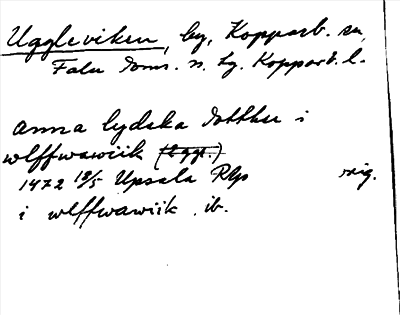 Uggleviken, by, Kopparb. sn,
Falu doms. n. tg. Kopparb. l.
anna lydeka dotther i
wlffwawiik (bygt.)
1472 18/5 Upsala RAp orig.
i wlffwawiik ib.